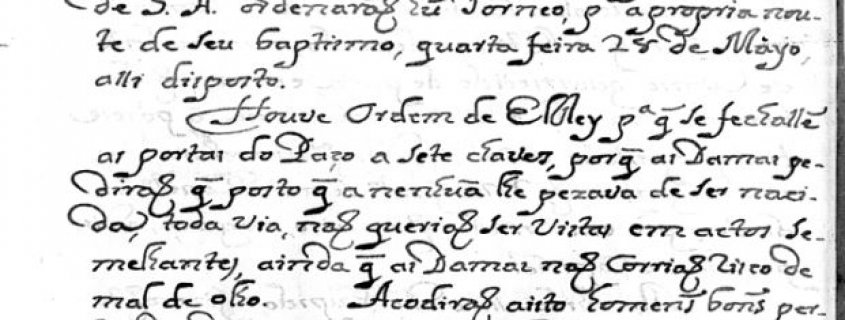 de S. A. ordenaraõ hũ Torneo, p.ª a propria nou-
te de seu baptismo, quarta feira 28 de Mayo,
assi disposto.
Houve Ordem de ElRey p.ª q̃ se fechassẽ
as portas do Paço a sete chaves, porq̃ as Damas pe-
diraõ q̃ posto q̃ a nenhuã lhe pezava de ser naci-
da, toda via, naõ queriaõ ser vistas em actos se-
melhantes, ainda q̃ as Damas naõ Corriaõ risco de
mal de olho. Acodiraõ a isto homens bons per-